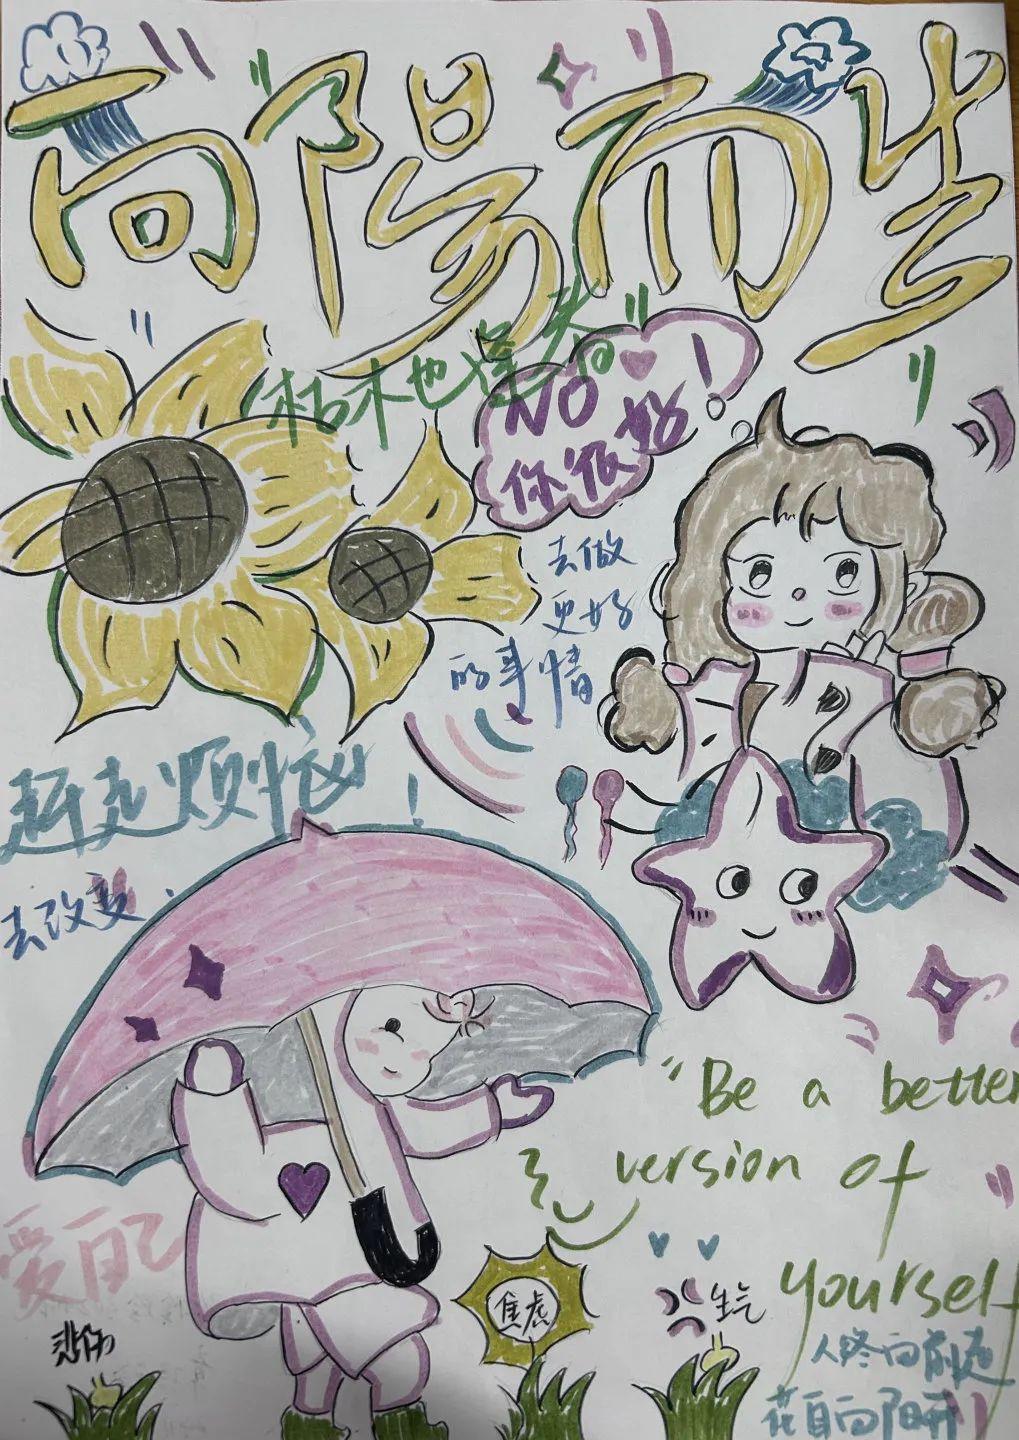 向陽而生
枯木也逢春
NO
你很好!
去做
更好
的事情
赶走烦恼!
去改变
"Be a better
version of
yourself
爱自己
悲伤
焦虑
生气
人终向前走
花自向阳开